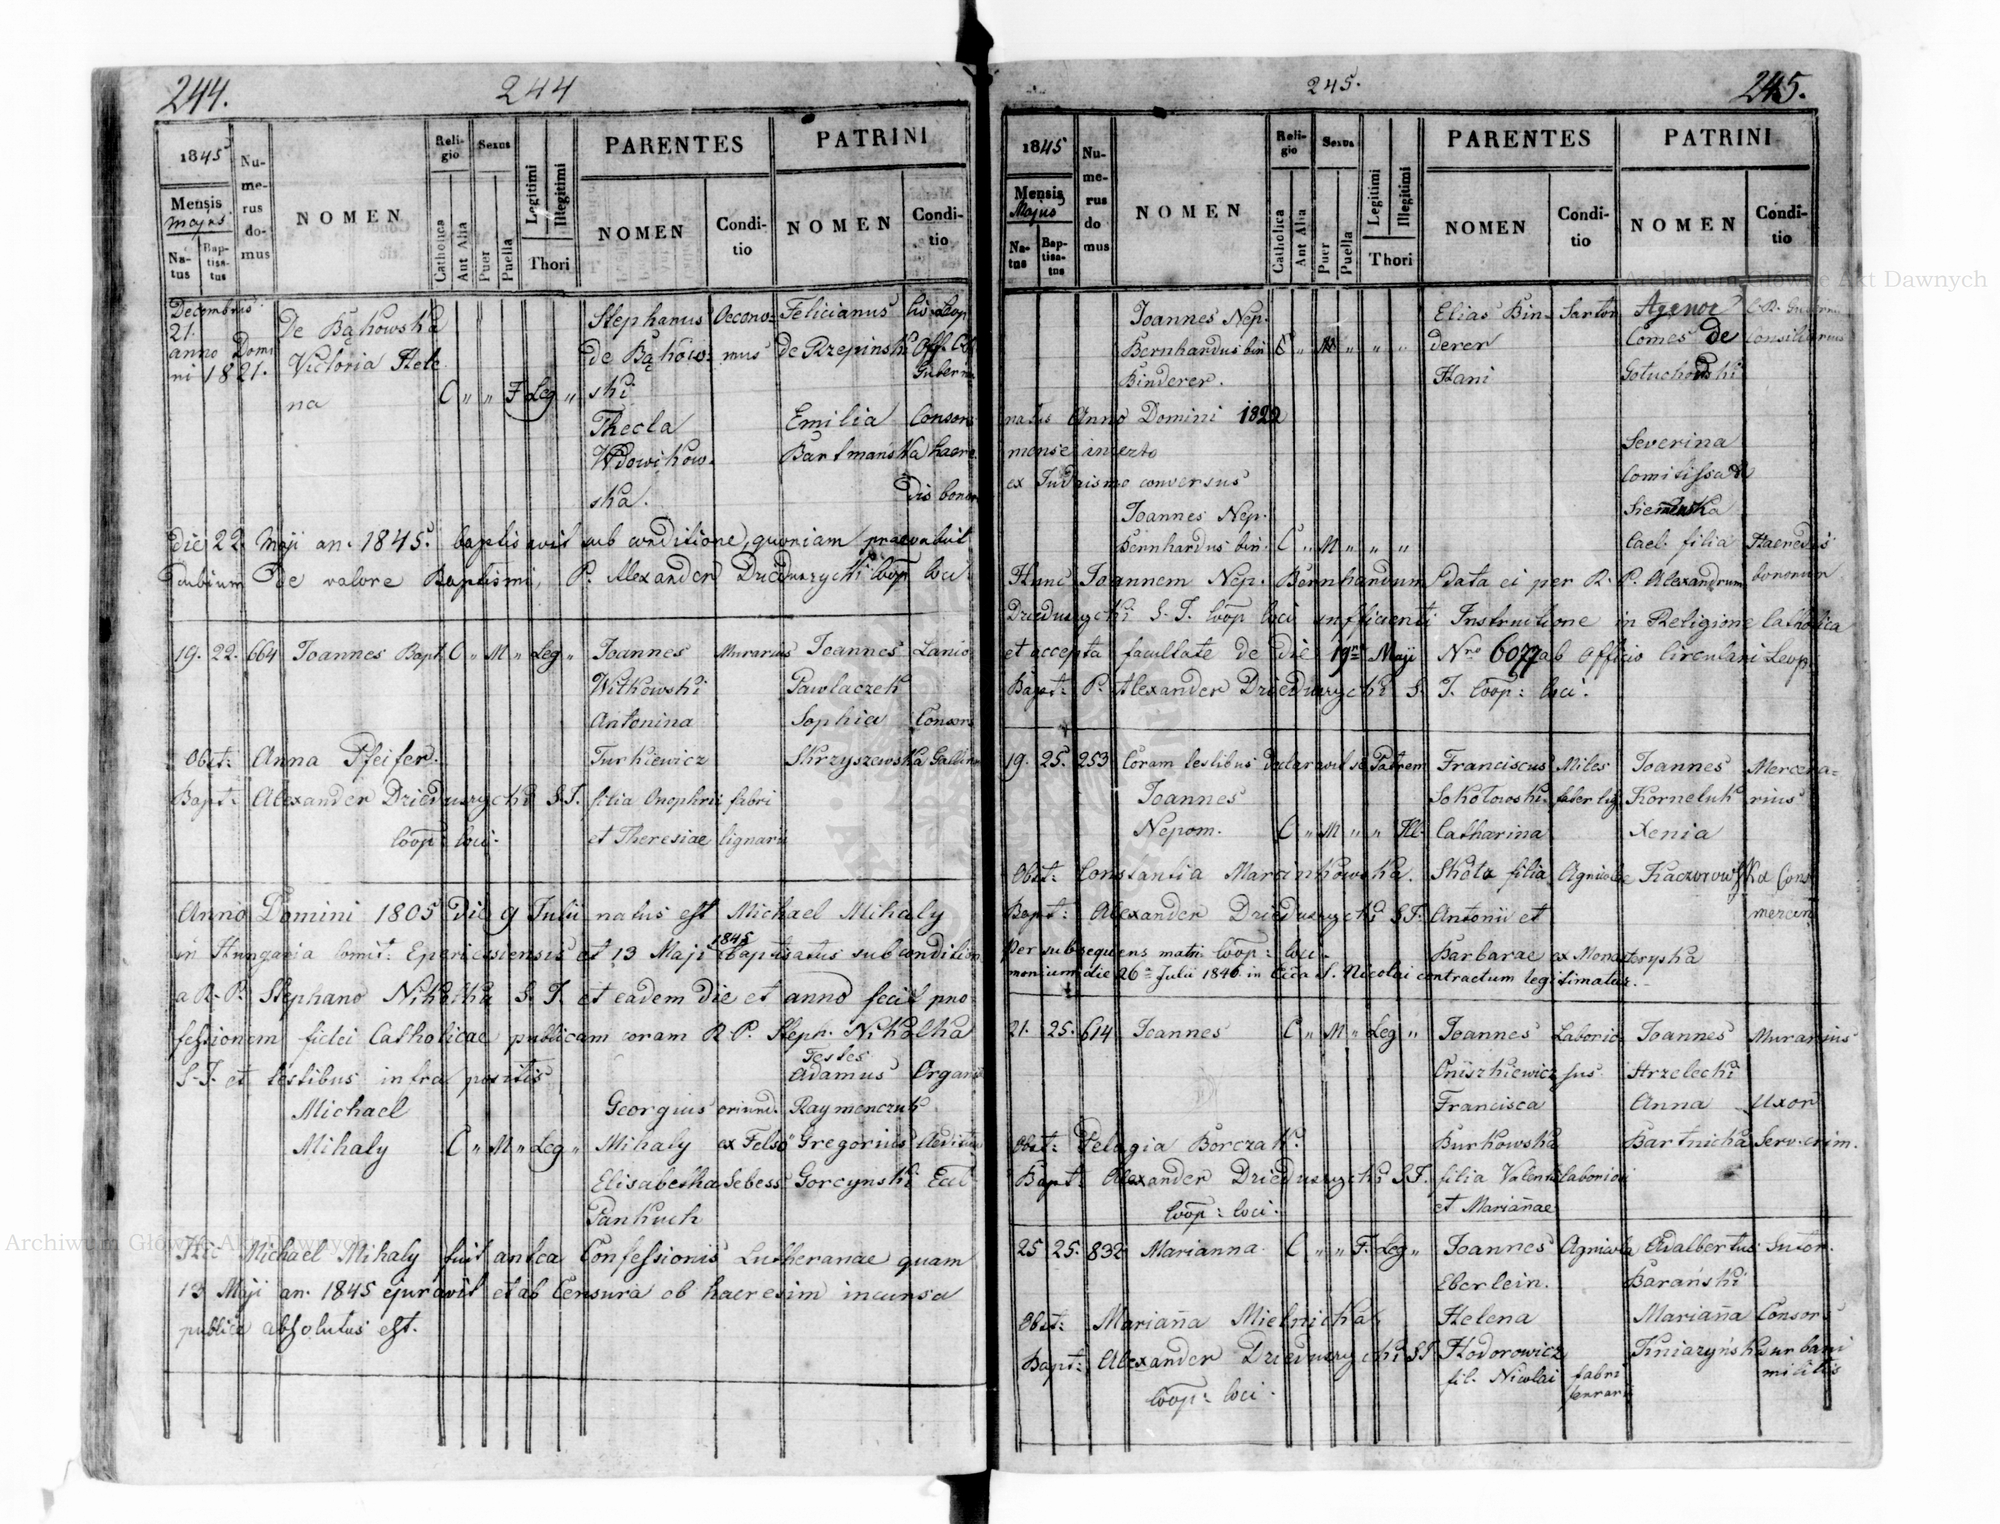 244.
244
1845
Mensis
Majus
Natus
Baptisatus
Numerus domus
NOMEN
Religio
Catholica
Aut Alia
Sexus
Puer
Puella
Legitimi
Illegitimi
Thori
PARENTES
NOMEN
Conditio
PATRINI
NOMEN
Conditio
Decembris
21.
anno Domi
ni 1821.
De Bąkowska
Victoria Hele
na
C " " F Leg "
Stephanus Oecono-
de Bąkow- mus
ski
Thecla
Wdowikow-
ska.
Felicianus
de Rzepinski
Emilia Consors
Bartmańska haere
dis bonor
die 22. Maji an. 1845. baptisavit sub conditione, quoniam praevaluit
dubium de valore Baptismi, P. Alexander Dzieduszycki Coop loci
19. 22. 664 Joannes Bapt C " M " Leg " Joannes Murarius Joannes Lanio
Witkowski Pawlaczek
Antonina Sophia Consors
Obst: Anna Pfeifer. Turkiewicz Skrzyszewska
Bapt: Alexander Dzieduszycki S.J. filia Onophrii fabri
Coop: loci. et Theresiae lignarii
Anno Domini 1805 die 9 Julii natus est Michael Mihaly
in Hungaria Comit: Eperiessiensis et 13 Maji 1845 baptisatus sub condition
a R. P. Stephano S. J. et eadem die et anno fecit pro-
fessionem fidei Catholicae publicam coram R. P. Steph.
S. J. et testibus infra positis
Testes
Adamus Organ
Michael Georgius oriund. Raymonczuk
Mihaly C " M " Leg " Mihaly ex Felső Gregorius
Elisabetha Sebess Gorcynski Eccl
Pankuch
Hic Michael Mihaly fuit antea Confessionis Lutheranae quam
13 Maji an. 1845 ejuravit et ab Censura ob haeresim incursa
publice absolutus est.
245.
245.
1845
Mensis
Majus
Natus
Baptisatus
Numerus domus
NOMEN
Religio
Catholica
Aut Alia
Sexus
Puer
Puella
Legitimi
Illegitimi
Thori
PARENTES
NOMEN
Conditio
PATRINI
NOMEN
Conditio
Joannes Nep. Elias Bin- Sartor Agenor
Bernhardus bin C " M " " " derer Comes de Consiliarius
Binderer. Hani Gołuchowski
natus Anno Domini 1822
mense incerto Severina
ex Judaismo conversus Comitissa de
Joannes Nep. Siemińska
Bernhardus bin. C " M " " " Cael. filia Haeredis
bonorum
Hunc Joannem Nep. Bernhardum data ei per R. P. Alexandrum
Dzieduszycki S. J. Coop loci sufficienti Instructione in Religione Catholica
et accepta facultate de die 19na Maji Nro 6077 ab Officio Circulari Leop.
Bapt. P. Alexander Dzieduszycki S. J. Coop: loci.
19. 25. 253 Coram testibus declaravit se Patrem Franciscus Miles Joannes Mercena-
Joannes Sokołowski faber lig Korneluk rius
Nepom. C " M " " Ill. Catharina Xenia
Obst: Constantia Marcinkowska. Skóta filia Agricolae Kaczorowska Cons
Bapt: Alexander Dzieduszycki S.J. Antonii et mercen
Per subsequens matri- Coop: loci. Barbarae ex Monastryska
monium die 26a Julii 1846 in Ecća S. Nicolai contractum legitimatus.
21. 25. 614 Joannes C " M " Leg " Joannes Laborio Joannes Murarius
Oniszkiewicz sus Strzelecki
Francisca Anna Uxor
Obst: Pelagia Borczak. Burkowska Bartnicka Serv. crim.
Bapt: Alexander Dzieduszycki S.J. filia Valenti laboriosi
Coop: loci. et Mariannae
25 25. 832 Marianna C " " F. Leg " Joannes Agricola Adalbertus Sutor.
Eberlein. Barański
Obst: Marianna Mielnicka Helena Marianna Consors
Bapt: Alexander Dzieduszycki S.J Hodorowicz Kniazyńska urbani
fil. Nicolai fabri militis
Coop: loci. ferrarii
Archiwum Główne Akt Dawnych
Archiwum Główne Akt Dawnych